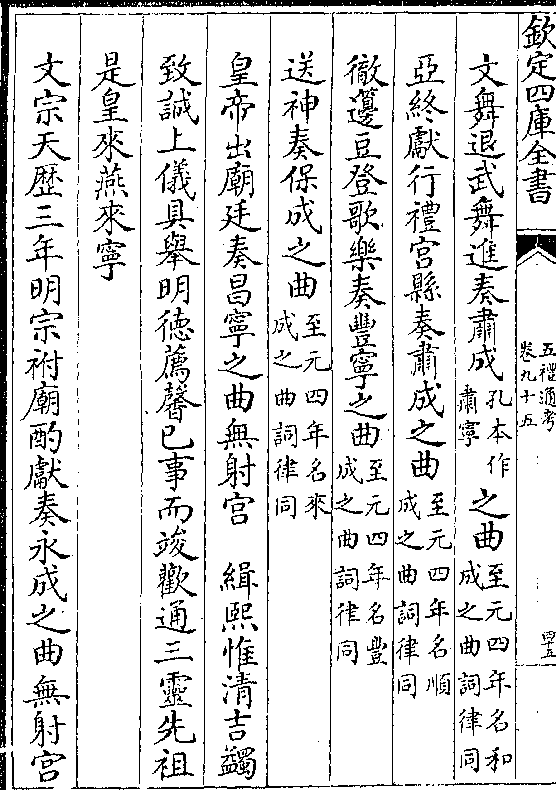 欽定四庫全書
五禮通考
卷九十五
四五
文舞退武舞進奏肅成孔本作肅寧之曲至元四年名和成之曲詞律同
亞終獻行禮宮縣奏肅成之曲至元四年名順成之曲詞律同
徹籩豆登歌樂奏豐寧之曲至元四年名豐成之曲詞律同
送神奏保成之曲至元四年名來成之曲詞律同
皇帝出廟廷奏昌寧之曲無射宮 緝熙惟清吉蠲
致誠上儀具舉明德薦馨已事而竣歡通三靈先祖
是皇來燕來寧
文宗天歷三年明宗祔廟酌獻奏永成之曲無射宮